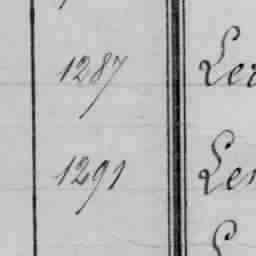 1287 Ler
1291 Len